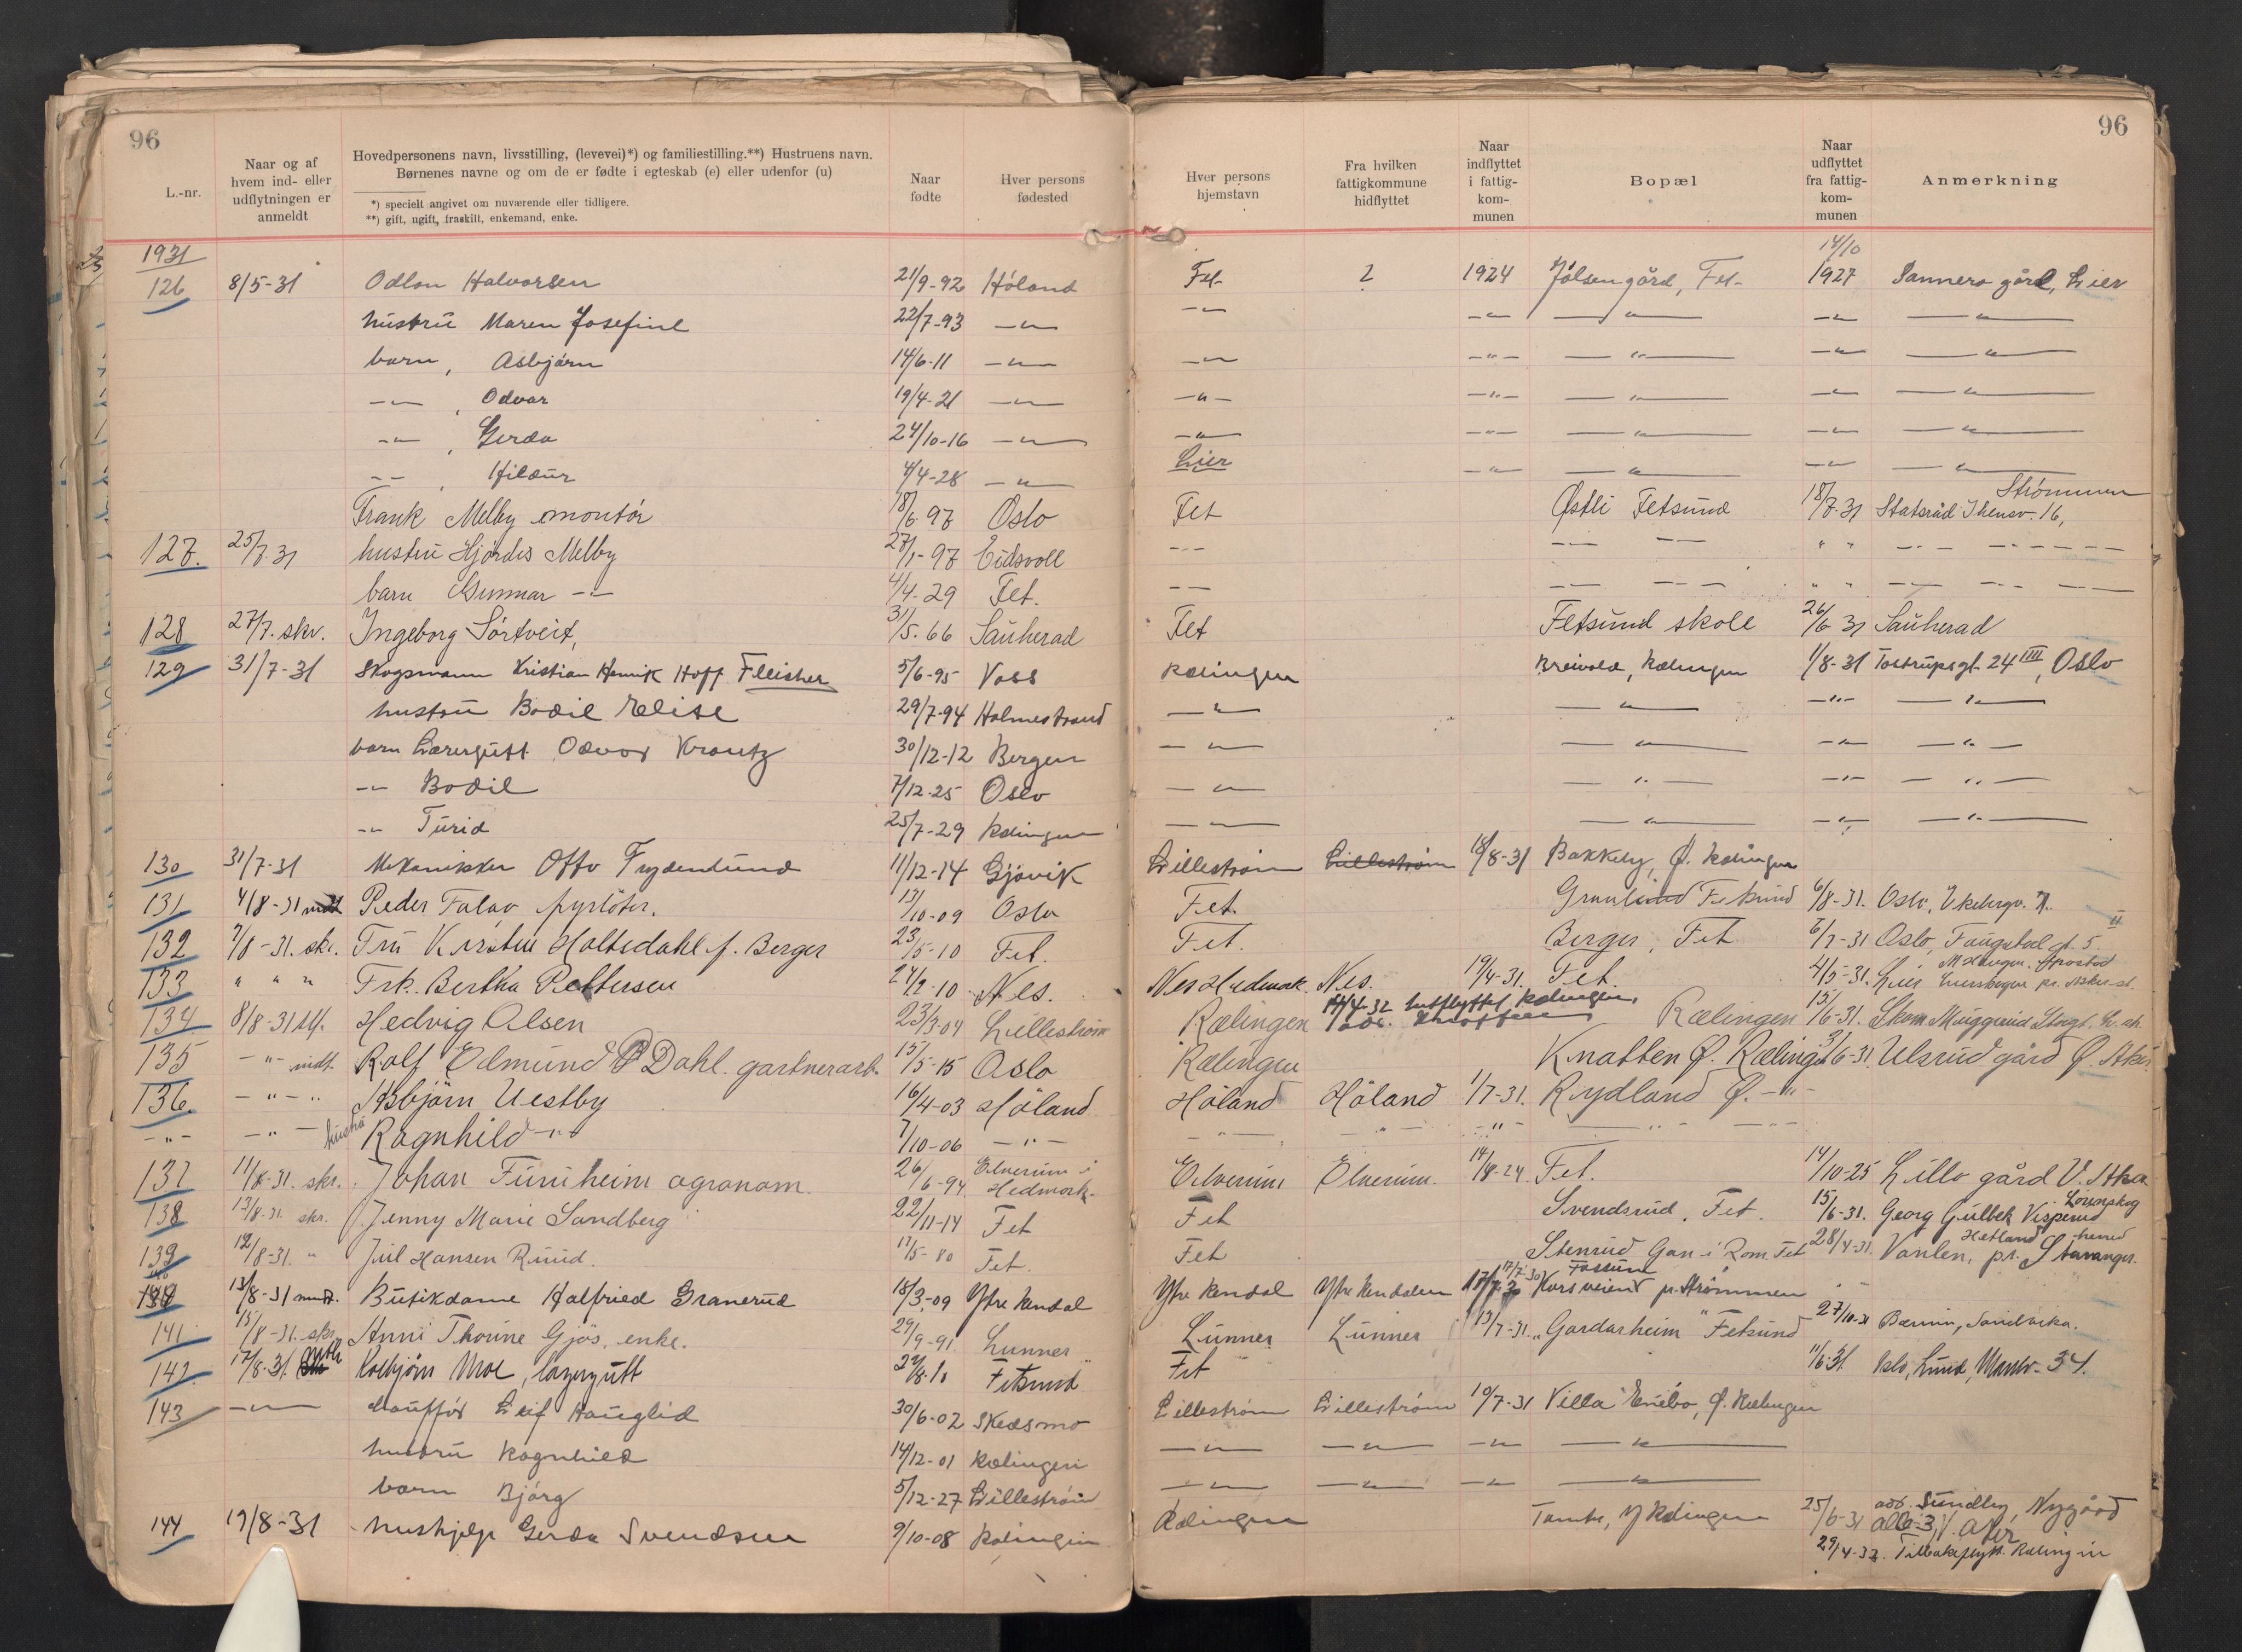 96
96
L.-nr.
Naar og af hvem ind- eller udflytningen er anmeldt
Hovedpersonens navn, livsstilling, (levevei)*) og familiestilling.**) Hustruens navn. Børnenes navne og om de er fødte i egteskab (e) eller udenfor (u)
*) specielt angivet om nuværende eller tidligere.
**) gift, ugift, fraskilt, enkemand, enke.
Naar fødte
Hver persons fødested
Hver persons hjemstavn
Fra hvilken fattigkommune hidflyttet
Naar indflyttet i fattigkommunen
Bopæl
Naar udflyttet fra fattigkommunen
Anmerkning
1931
126 8/5-31 Odlon Halvorsen 21/9-92 Höland Fet ? 1924 Jölsen gård, Fet 14/10 1927 Sannero gård, Lier
hustru Maren Josefine 22/7-93 -"- -"- -"- -"- -"- -"-
barn, Asbjörn 14/6-11 -"- -"- -"- -"- -"- -"-
-"-, Odvar 19/4-21 -"- -"- -"- -"- -"- -"-
-"-, Gerda 24/10-16 -"- -"- -"- -"- -"- -"-
-"-, Hildur 4/4-28 -"- Lier -"- -"- -"- -"-
Frank Melby montör 18/6-97 Oslo Fet Østli Fetsund 18/7-31 Statsråd Ihlensv. 16, Strømmen
127. 25/7-31 hustru Hjördis Melby 27/1-97 Eidsvoll -"- -"- -"- " " -"-
barn Gunnar -"- 4/4-29 Fet. -"- -"- -"- " " -"-
128 27/7. skr. Ingeborg Sörtveit, 31/5.66 Sauherad Fet Fetsund skole 26/6 31 Sauherad
129 31/7-31 Skogsmann Kristian Henrik Hoff Fleischer 5/6-95 Voss Rælingen Breivold, Rælingen 1/8-31 Tostrupsgt. 24 III, Oslo
hustru Bodil Elise 29/7-94 Holmestrand -"- -"- -"- -"-
barn Lærergutt Odvar Krantz 30/12-12 Bergen -"- -"- -"- -"-
-"- Bodil 7/12-25 Oslo -"- -"- -"- -"-
-"- Turid 25/7-29 Rælingen -"- -"- -"- -"-
130 31/7-31 Mekaniker Otto Frydenlund 11/12-14 Gjövik Lilleström Lilleström 18/8-31 Bakkely, Ø. Rælingen
131 4/8-31 mdt Peder Falao fyrböter. 13/10-09 Oslo Fet. Granlund Fetsund 6/8-31. Oslo,
132 7/8-31. skr. Fru Kirsten Holtedahl f. Berger 23/5-10 Fet. Fet. Berger, Fet 6/7-31 Oslo, Faugstad gt. 5. II
133 " " " Frk. Bertha Pettersen 24/2-10 Nes. Nes Hedmark. Nes. 19/4-31. Fet. 4/5-31. Lier
134 8/8-31 Hedvig Olsen 23/3-04 Lilleström Rælingen 14/4-32 Innflyttet Rælingen Rælingen 15/6-31.
135 -"- mdt. Rolf Edmund Dahl. gartnerarb. 15/5-15 Oslo Rælingen Knatten Ø. Rælingen 6-31 Ulsrud gård Ø. Aker
136. -"-"- Asbjörn Vestby 16/4-03 Höland Höland Höland 1/7-31. Rydland Ø. -"-
-"- -"- hustru Ragnhild -"- 7/10-06 -"- -"- -"- -"- -"- -"-
137 11/8-31. skr. Johan Furuheim agronom. 26/6-94. Elverum i Hedmark. Elverum Elverum. 14/8-24 Fet. 14/10-25 Lillo gård V. Aker
138 13/8-31. skr. Jenny Marie Sandberg 22/11-14 Fet Fet Svendsrud, Fet. 15/6-31. Georg Gulbek Visperud Lørenskog
139 12/8-31. " Jul Hansen Ruud. 17/5-80 Fet. Fet Stenrud Gan i Rom. Fet 28/4-31. Vanlen, pr. Stavanger. Hetland herred
140 13/8-31 mdt. Butikdame Halfried Granerud 18/3-09 Ytre Rendal Ytre Rendal Ytre Rendalen 17/7-30 Fossum Korsveien pr. Strömmen
141 15/8-31. skr. Anni Thorine Gjös, enke. 29/9-91. Lunner Lunner Lunner 13/7-31. "Gardarheim" Fetsund 27/10-31 Bærum, Sandvika.
142. 17/8-31. mdtl Kolbjörn Moe, lagergutt 24/8-10 Fetsund Fet 11/6-31 Oslo, Lund, 34.
143 -"- Chauffør Leif Hauglid 30/6-02 Skedsmo Lilleström Lilleström 10/7-31 Villa Enebo, Ø. Rælingen
hustru Ragnhild 14/12-01 Rælingen -"- -"- -"- -"-
barn Björg 5/12-27 Lilleström -"- -"- -"- -"-
144 19/8-31 Hushjelp Gerda Svendsen 9/10-08 Rælingen Rælingen Tomte, Y Rælingen 25/6-31 adr. Sundby, Nygård V. Aker
29/4-32. Tilbakeflytt. Rælingen